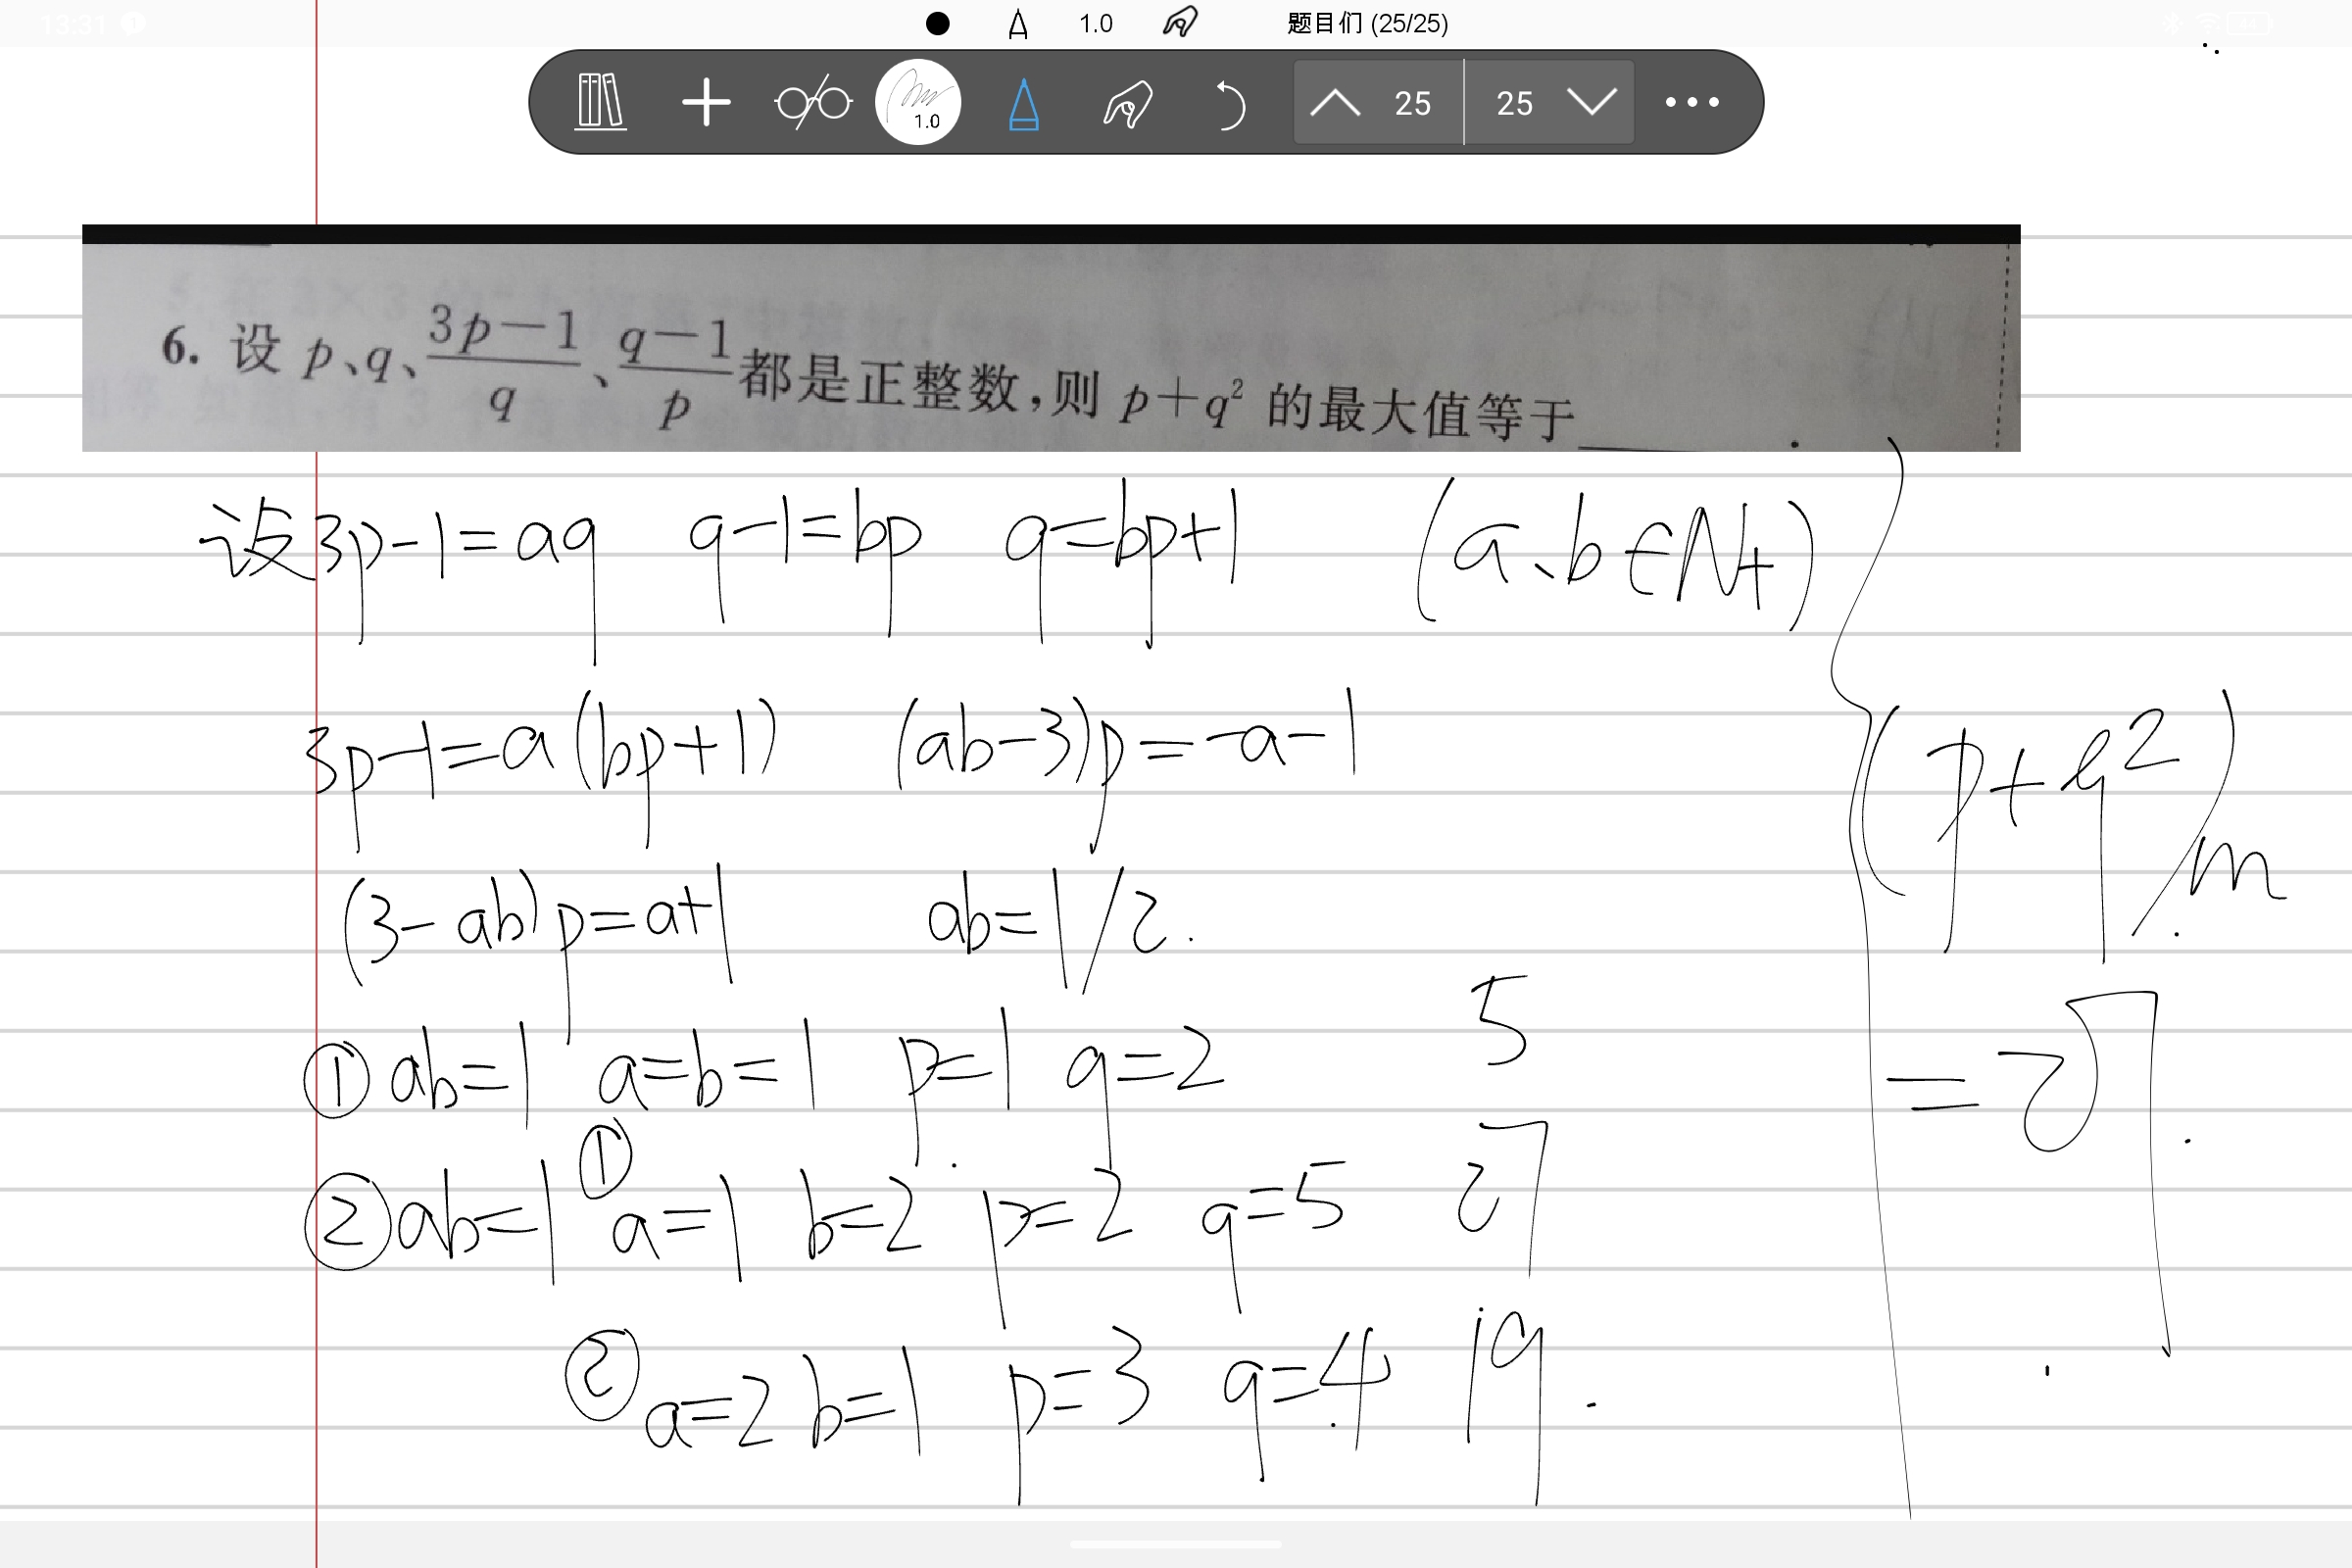 13:31
1.0 题目们 (25/25)
1.0 25 25
6. 设 p、q、\frac{3p-1}{q}、\frac{q-1}{p}都是正整数,则 p+q² 的最大值等于______.
设3p-1=aq q-1=bp q=bp+1 (a、b∈N+)
3p-1=a(bp+1) (ab-3)p=-a-1
(3-ab)p=a+1 ab=1/2.
① ab=1 a=b=1 p=1 q=2 5
② ab=1 ① a=1 b=2 p=2 q=5 27
② a=2 b=1 p=3 q=4 19.
(p+q²)m
=27.